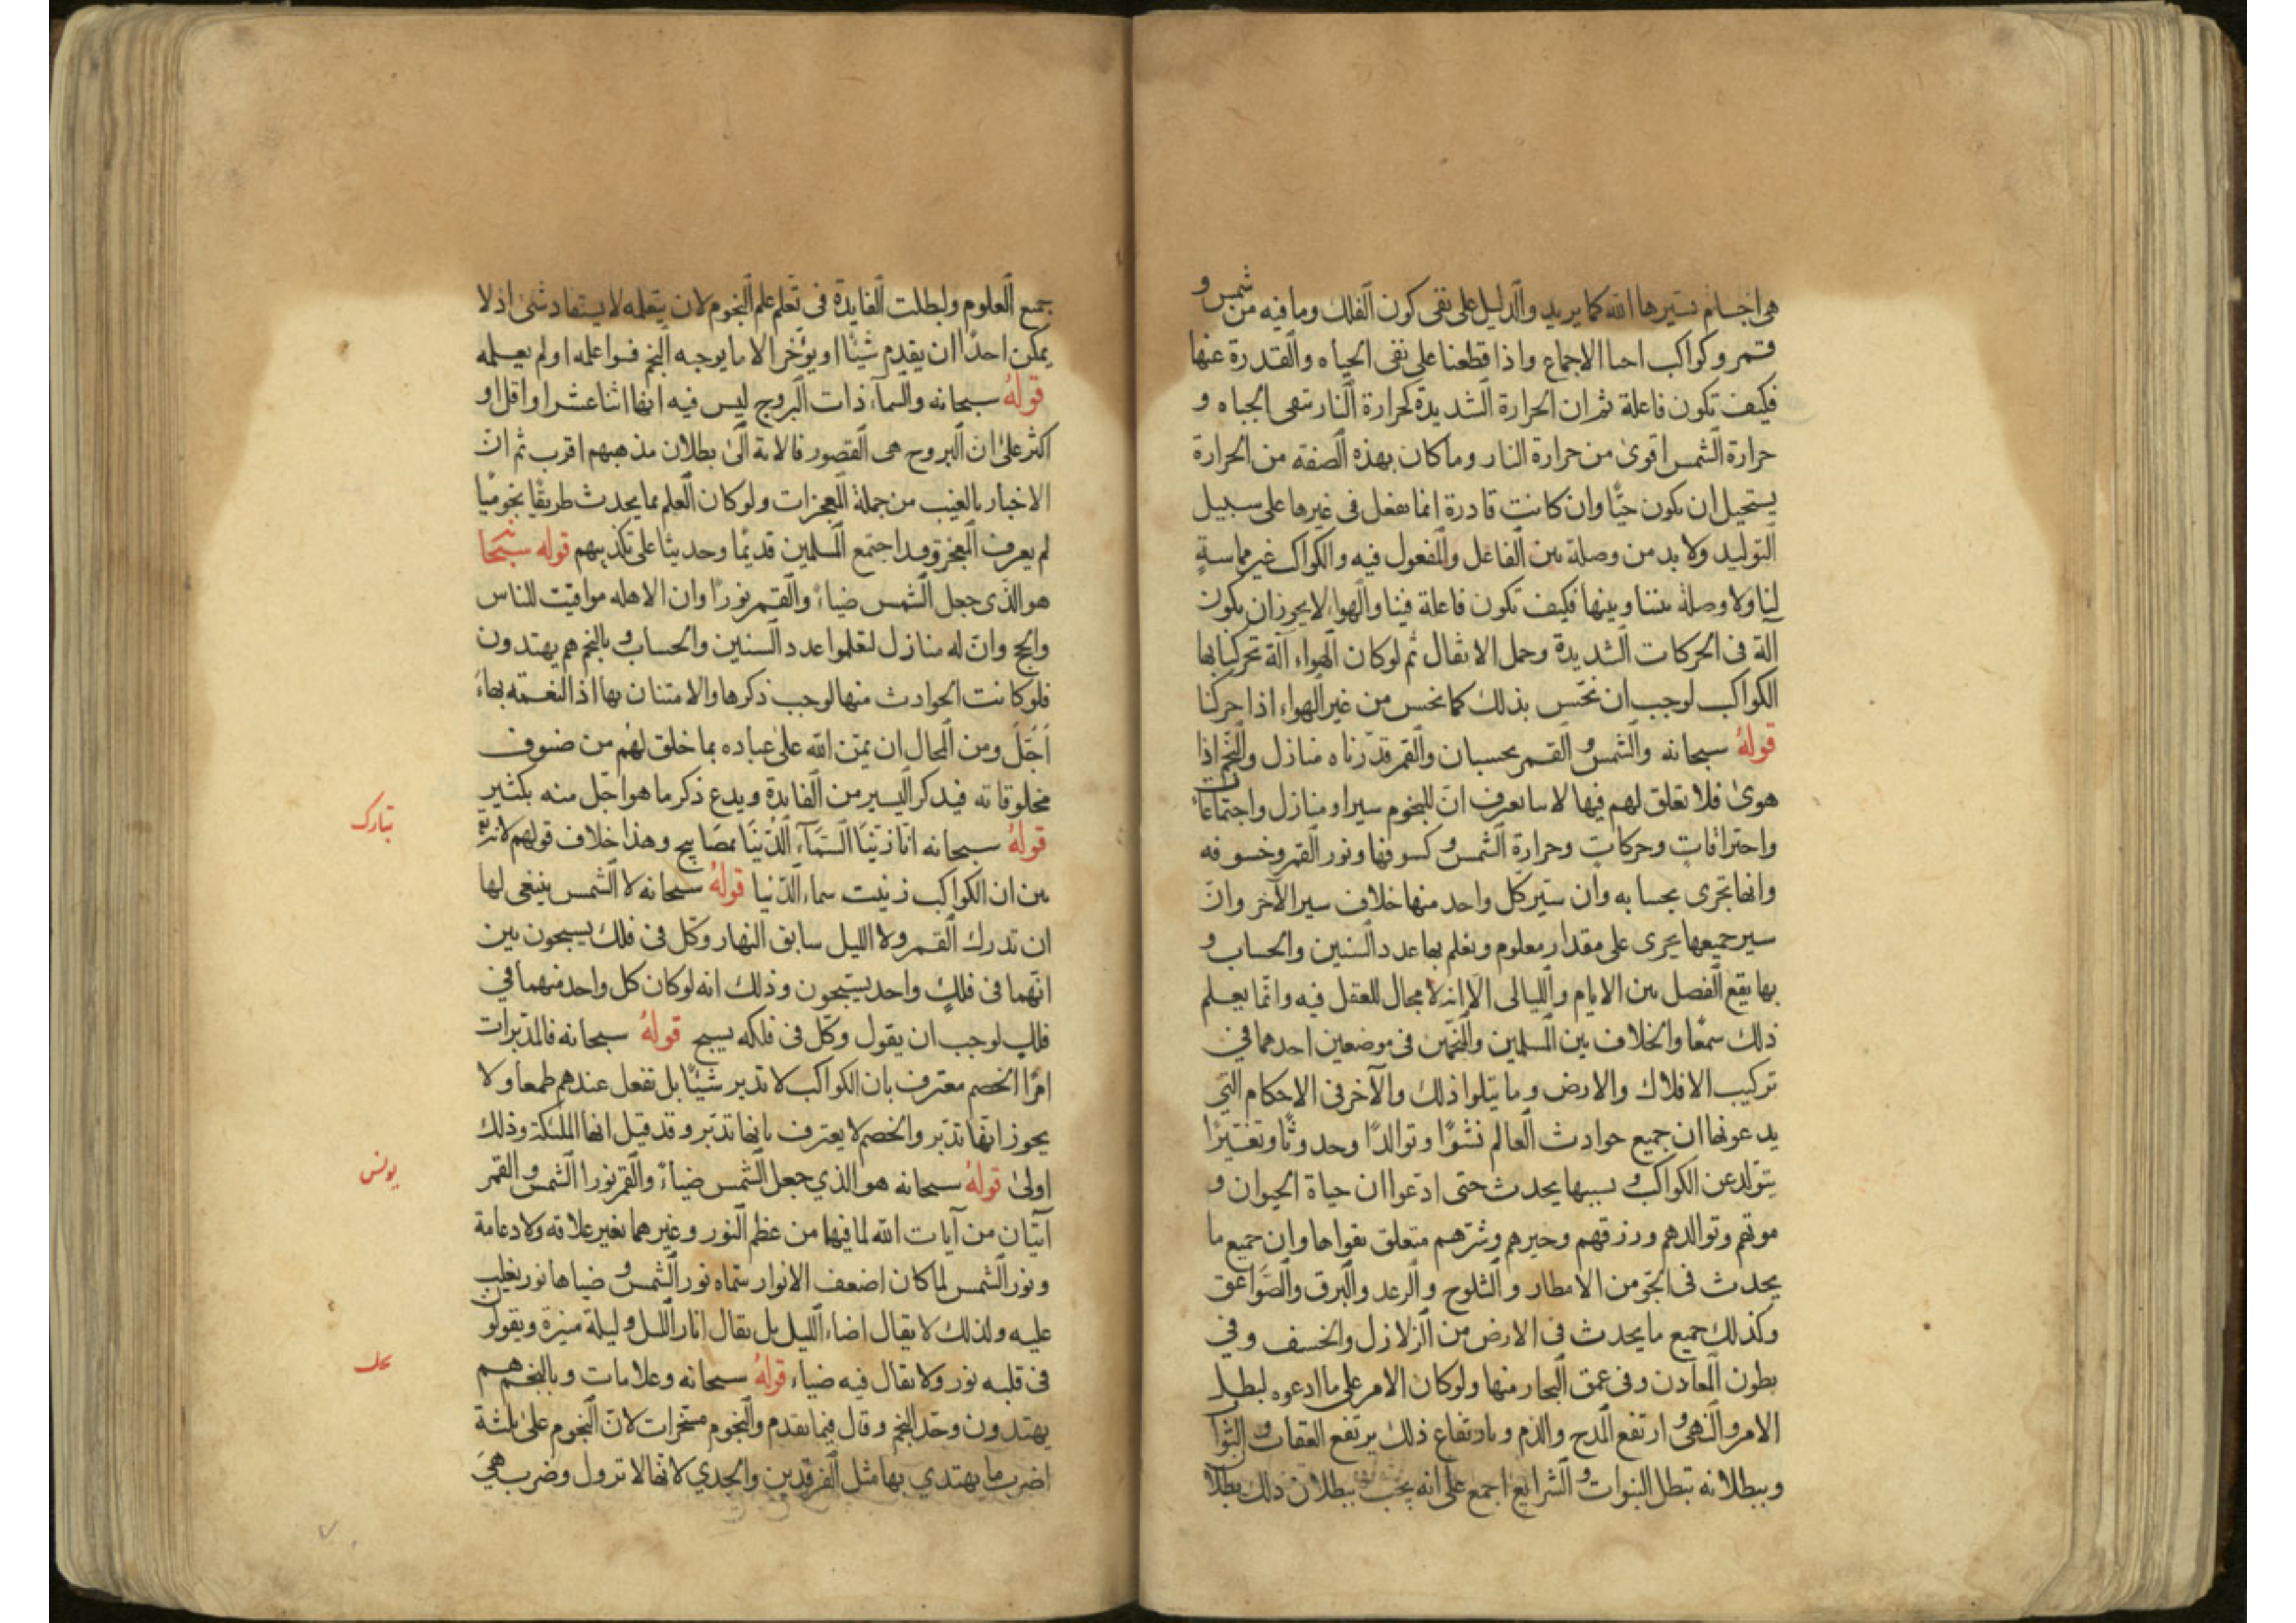 هى اجسام يسيرها الله كما يريد والدليل على نفى كون الفلك وما فيه من شمس و
قمر وكواكب احيا الاجماع واذا قطعنا على نفى الحياه والقدرة عنها
فكيف تكون فاعلة ثم ان الحرارة الشديدة كحرارة النار تنفى الحياه و
حرارة الشمس اقوى من حرارة النار وما كان بهذه الصفة من الحرارة
يستحيل ان يكون حيًّا وان كانت قادرة انما تفعل فى غيرها على سبيل
التوليد ولا بد من وصلة بين الفاعل والمفعول فيه والكواكب غير مماسةٍ
لنا ولا وصلة بيننا وبينها فكيف تكون فاعلة فينا والهواء لا يجوز ان يكون
آلة فى الحركات الشديدة وحمل الاثقال ثم لو كان الهواء آلة تحركنا بها
الكواكب لوجب ان نحس بذلك كما نحس من غير الهواء اذا حركنا
قوله سبحانه والشمس والقمر بحسبان والقمر قدرناه منازل والنجم اذا
هوىٰ فلا تعلق لهم فيها لاننا نعرف ان للنجوم سيرا ومنازل واجتماعات
واحتراقاتٍ وحركاتٍ وحرارة الشمس وكسوفها ونور القمر وخسوفه
وانها تجرى بحسابه وان سير كل واحد منها خلاف سير الآخر وان
سير جميعها يجرى على مقدار معلوم ونعلم بها عدد السنين والحساب و
بها يقع الفصل بين الايام والليالى الا انه لا مجال للعقل فيه وانما يعلم
ذلك سمعًا والخلاف بين المسلمين والمنجمين فى موضعين احدهما فى
تركيب الافلاك والارض وما يتلوا ذلك والآخر فى الاحكام التى
يدعونها ان جميع حوادث العالم نشوًا وتوالدًا وحدوثًا وتغييرًا
يتولد عن الكواكب وبسببها يحدث حتى ادعوا ان حياة الحيوان و
موتهم وتوالدهم ورزقهم وخيرهم وشرهم متعلق بقواها وان جميع ما
يحدث فى الجو من الامطار والثلوج والرعد والبرق والصواعق
وكذلك جميع ما يحدث فى الارض من الزلازل والخسف وفى
بطون المعادن وفى عمق البحار منها ولو كان الامر على ما ادعوه لبطل
الامر والنهى وارتفع المدح والذم وبارتفاع ذلك يرتفع العقاب والثواب
وببطلانه تبطل النبوات والشرايع اجمع على انه يجب ببطلان ذلك بطلان
جميع العلوم ولبطلت الفايدة فى تعلم علم النجوم لان بتعلمه لا يستفاد شىء اذ لا
يمكن احدًا ان يقدم شيئًا او يؤخر الا ما يوجبه النجم فسواء علمه او لم يعلمه
قوله سبحانه والسماء ذات البروج ليس فيه انها اثنا عشر او اقل او
اكثر على ان البروج هى القصور فالاية الى بطلان مذهبهم اقرب ثم ان
الاخبار بالغيب من جملة المعجزات ولو كان العلم بما يحدث طريقًا نجوميًا
لم يعرف المعجزة وقد اجتمع المسلمين قديمًا وحديثا على تكذيبهم قوله سبحا
هو الذى جعل الشمس ضياءً والقمر نورًا وان الاهله مواقيت للناس
والحج وان له منازل لتعلموا عدد السنين والحساب وبالنجم هم يهتدون
فلو كانت الحوادث منها لوجب ذكرها والامتنان بها اذ النعمة بها
اَجَلّ ومن المحال ان يمتن الله على عباده بما خلق لهم من صنوف
مخلوقاته فيذكر اليسير من الفايدة ويدع ذكر ما هو اجل منه بكثير
تبارك
قوله سبحانه انا زينا السماء الدنيا بمصابيح وهذا خلاف قولهم لانه
بين ان الكواكب زينت سماء الدنيا قوله سبحانه لا الشمس ينبغى لها
ان تدرك القمر ولا الليل سابق النهار وكل فى فلك يسبحون بين
انهما فى فلكٍ واحد يسبحون وذلك انه لو كان كل واحد منهما فى
فلك لوجب ان يقول وكل فى فلكه يسبح قوله سبحانه فالمدبرات
امرًا الخصم معترف بان الكواكب لا تدبر شيئًا بل تفعل عندهم طبعا ولا
يجوز انها تدبر والخصم لا يعترف بانها تدبر وقد قيل انها الملئكة وذلك
يونس
اولىٰ قوله سبحانه هو الذي جعل الشمس ضياءً والقمر نورا الشمس والقمر
آيتان من آيات الله لما فيها من عظم النور وغيرهما بغير علاقة ولا دعامة
ونور الشمس لما كان اضعف الانوار سماه نور الشمس وضياها نور يغلب
عليه ولذلك لا يقال اضاء الليل بل يقال انار الليل وليلة منيرة ويقولون
نحل
فى قلبه نور ولا يقال فيه ضياء قوله سبحانه وعلامات وبالنجم هم
يهتدون وحد النجم وقال فيما تقدم والنجوم مسخرات لان النجوم على ثلثة
اضرب ما يهتدي بها مثل الفرقدين والجدي لانها لا تزول وضرب هى